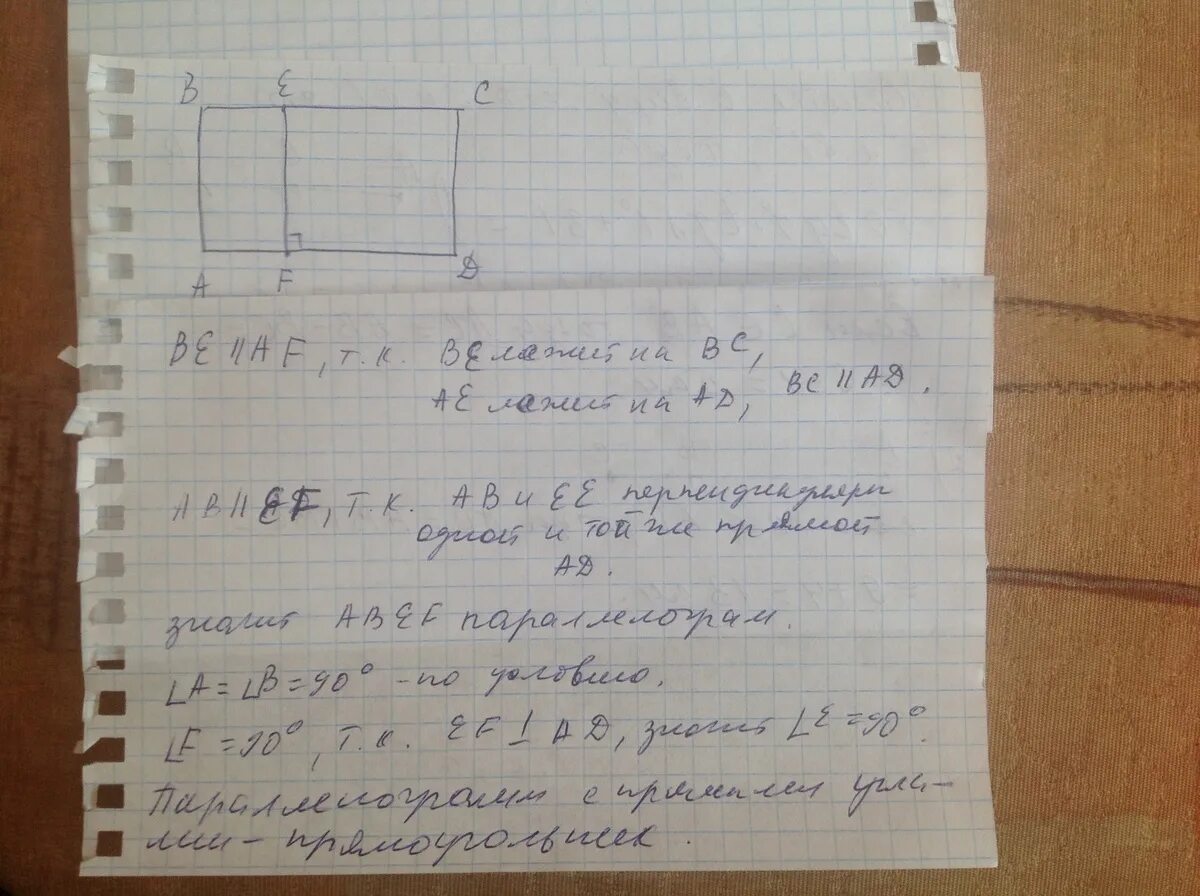 B E C
A F D
BE || AF, т.к. BE лежит на BC,
AE лежит на AD, BC || AD.
AB || EF, т.к. AB и EE перпендикуляры
одной и той же прямой
AD.
значит ABEF параллелограм.
∠A = ∠B = 90° - по условию.
∠F = 90°, т.к. EF ⊥ AD, значит ∠E = 90°.
Параллелограмм с прямыми угла-
ми - прямоугольник.